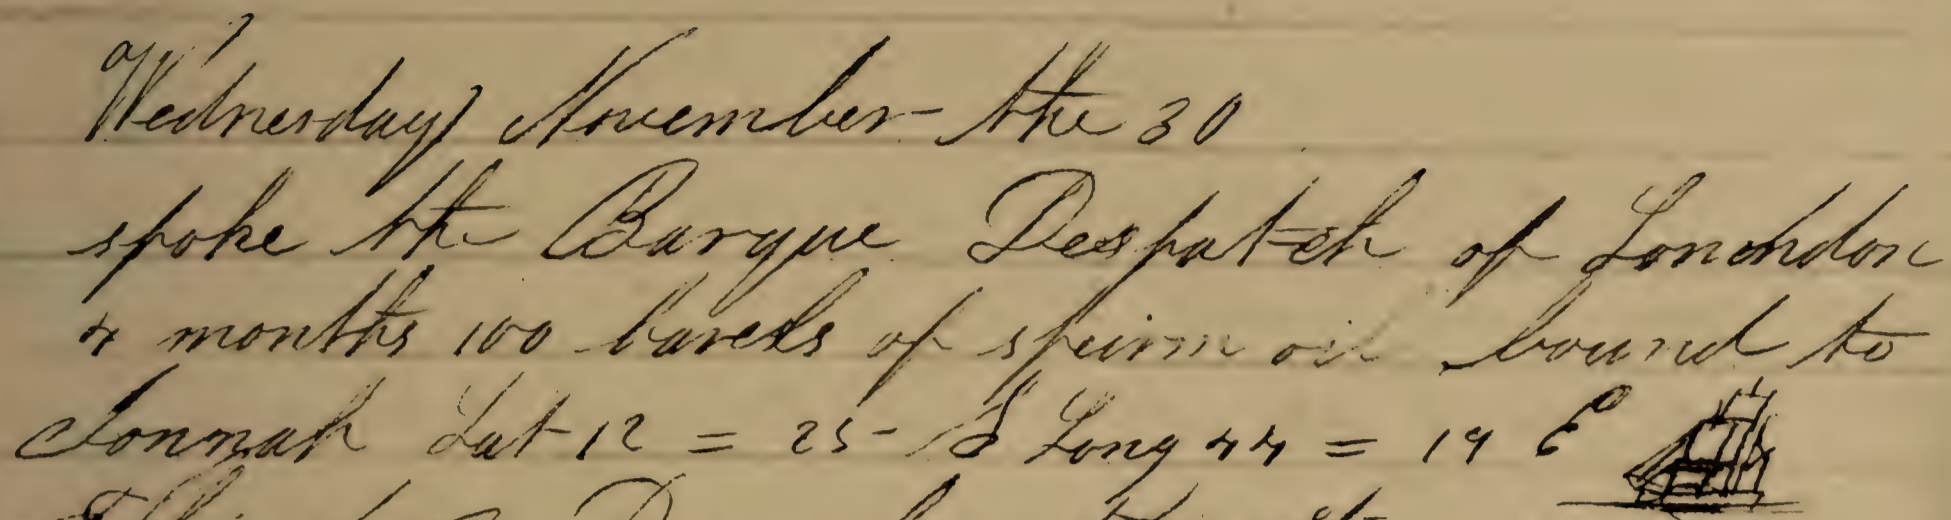 Wednesday November the 30
spoke the Barque Despatch of Lonondon
4 months 100 barels of speirm oil bound to
Lat 12 = 25 S Long 44 = 19 E